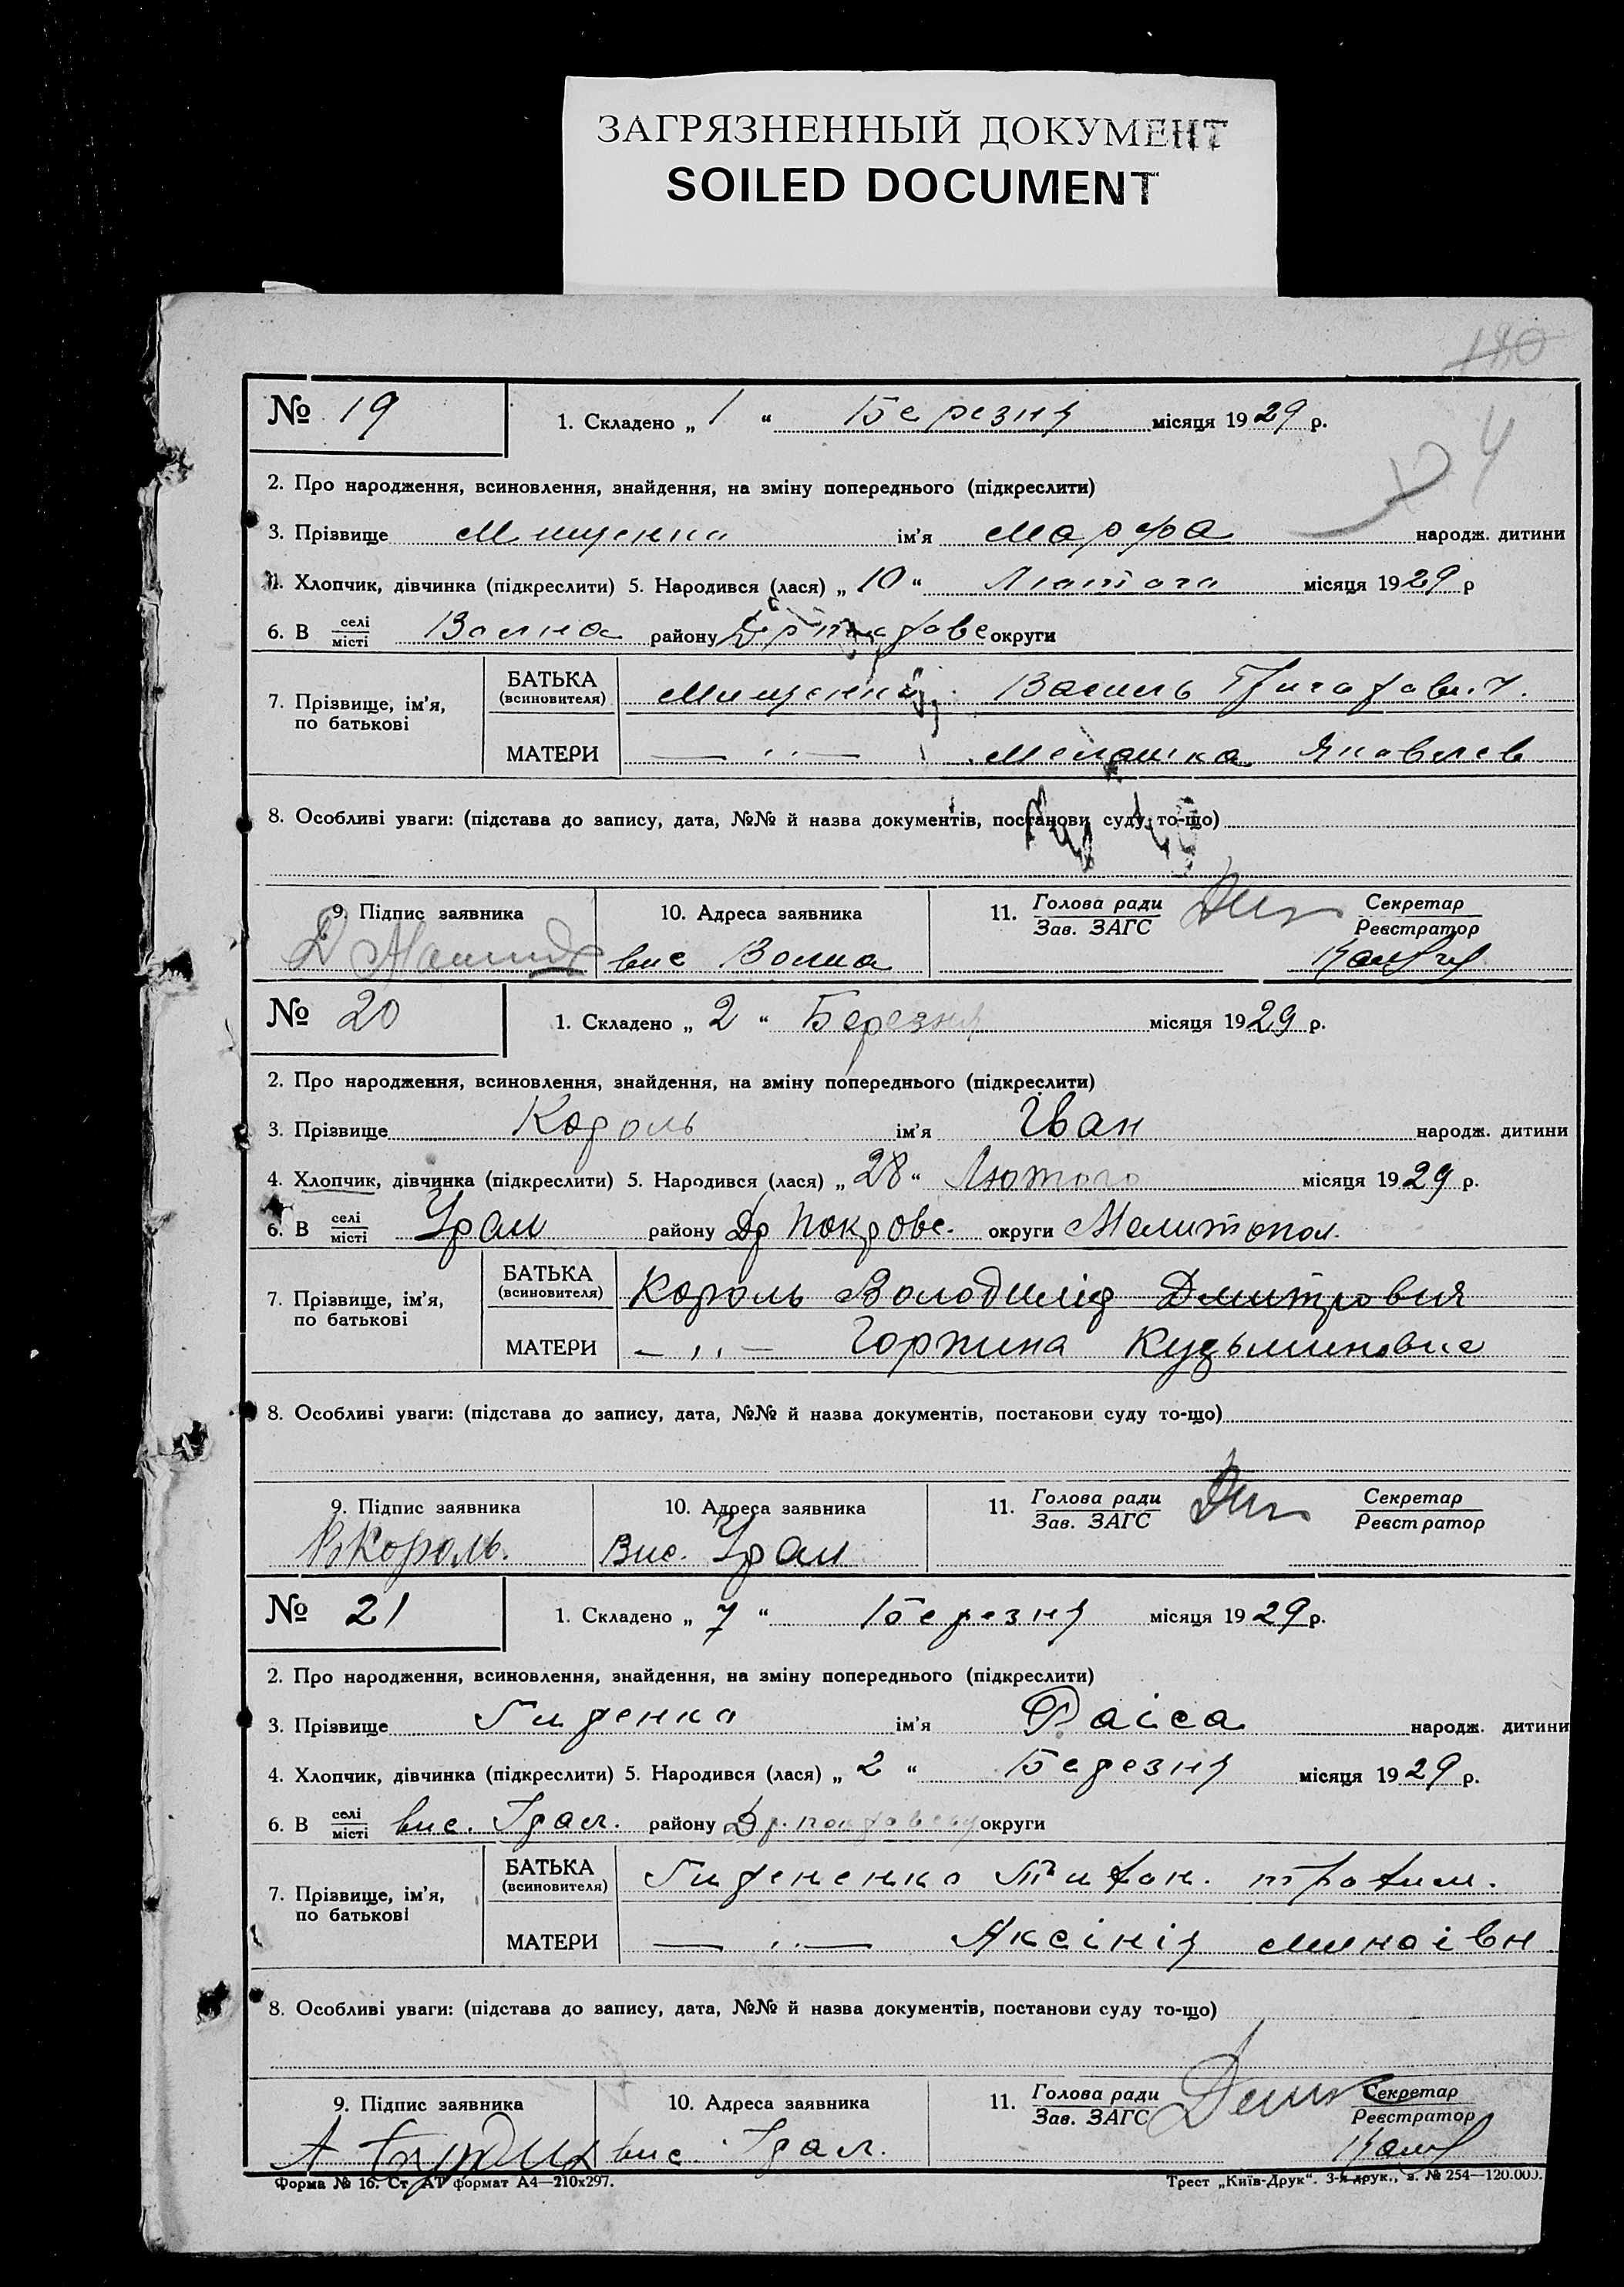 ЗАГРЯЗНЕННЫЙ ДОКУМЕНТ
SOILED DOCUMENT
180
4
№ 19
1. Складено „ 1 “ Березня місяця 1929 р.
2. Про народження, всиновлення, знайдення, на зміну попереднього (підкреслити)
3. Прізвище Мищенко ім’я Марфа народж. дитини
4. Хлопчик, дівчинка (підкреслити) 5. Народився (лася) „ 10 “ Лютого місяця 1929 р
6. В селі/місті району округи
7. Прізвище, ім’я, по батькові
БАТЬКА (всиновителя) Мищенко Василь Григорович.
МАТЕРИ — „ — Мелашка Яковлев
8. Особливі уваги: (підстава до запису, дата, №№ й назва документів, постанови суду то-що)
9. Підпис заявника
10. Адреса заявника
11. Голова ради/Зав. ЗАГС
Секретар/Реєстратор
вис
№ 20
1. Складено „ 2 “ Березня місяця 1929 р.
2. Про народження, всиновлення, знайдення, на зміну попереднього (підкреслити)
3. Прізвище Король ім’я Іван народж. дитини
4. Хлопчик, дівчинка (підкреслити) 5. Народився (лася) „ 28 “ Лютого місяця 1929 р.
6. В селі/місті Урал району Др Покровс. округи Мелитопол.
7. Прізвище, ім’я, по батькові
БАТЬКА (всиновителя) Король Володимір Дмитрович
МАТЕРИ — „ — Горпина Кузьминовна
8. Особливі уваги: (підстава до запису, дата, №№ й назва документів, постанови суду то-що)
9. Підпис заявника
10. Адреса заявника
11. Голова ради/Зав. ЗАГС
Секретар/Реєстратор
ВКороль.
Вис. Урал
№ 21
1. Складено „ 7 “ Березня місяця 1929 р.
2. Про народження, всиновлення, знайдення, на зміну попереднього (підкреслити)
3. Прізвище ім’я Раїса народж. дитини
4. Хлопчик, дівчинка (підкреслити) 5. Народився (лася) „ 2 “ Березня місяця 1929 р.
6. В селі/місті вис. Урал. району Др. округи
7. Прізвище, ім’я, по батькові
БАТЬКА (всиновителя)
МАТЕРИ — „ — Аксінія Минаівн
8. Особливі уваги: (підстава до запису, дата, №№ й назва документів, постанови суду то-що)
9. Підпис заявника
10. Адреса заявника
11. Голова ради/Зав. ЗАГС
Секретар/Реєстратор
вис. Урал.
Форма № 16. Ст. АТ формат А4—210х297.
Трест „Київ-Друк“. 3-я друк., з. № 254—120.000.